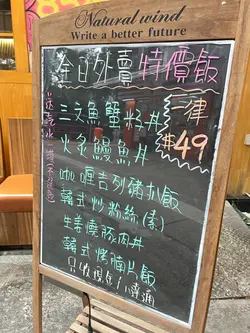 Natural wind
Write a better future
全日外賣特價飯
三文魚蟹籽丼
一律
$49
火炙鰻魚丼
咖喱吉列豬扒飯
韓式炒粉絲(素)
生姜燒豚肉丼
韓式烤腩片飯
只收現金/八達通
送乾冰